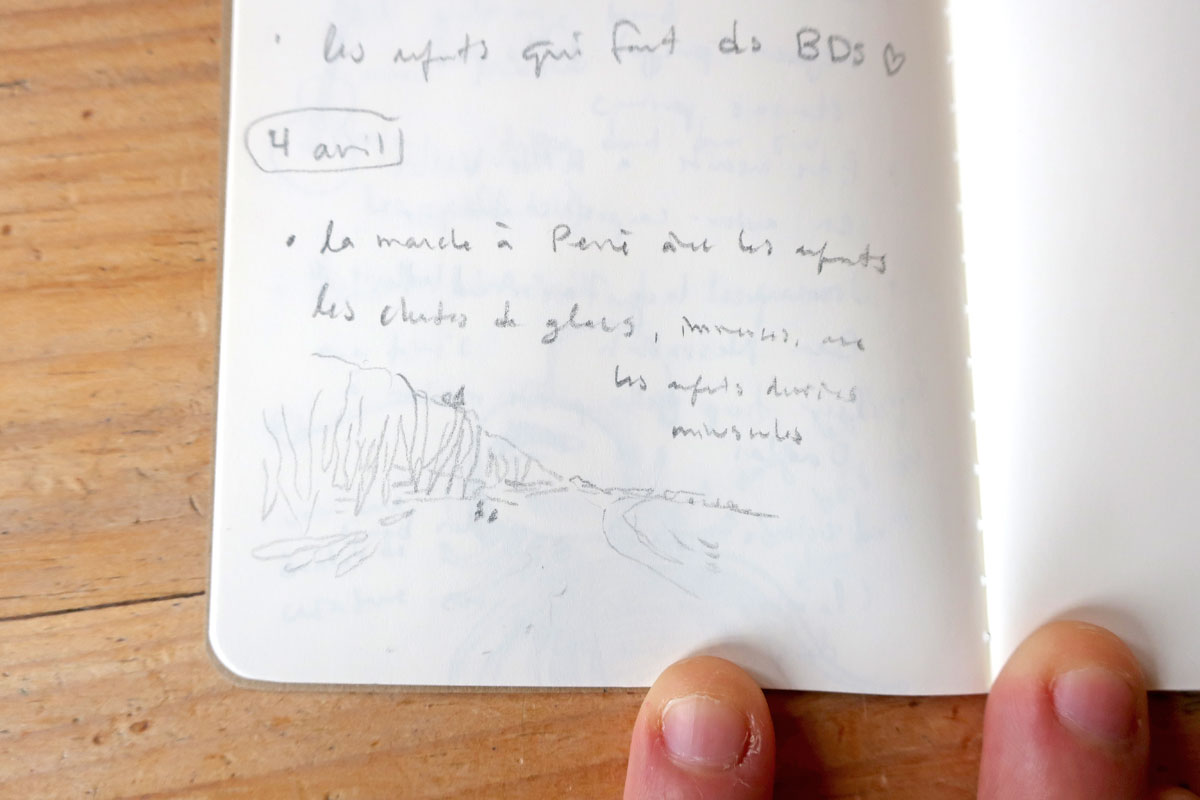 • les enfants qui font des BDs ♡
4 avril
• la marche à Percé avec les enfants
les chutes de glace, immenses, avec
les enfants devenus
minuscules